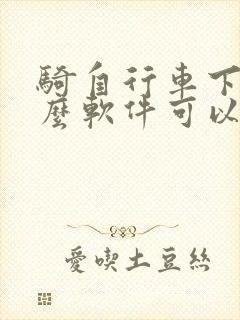 騎自行車下
麼軟件可以
愛喫土豆絲